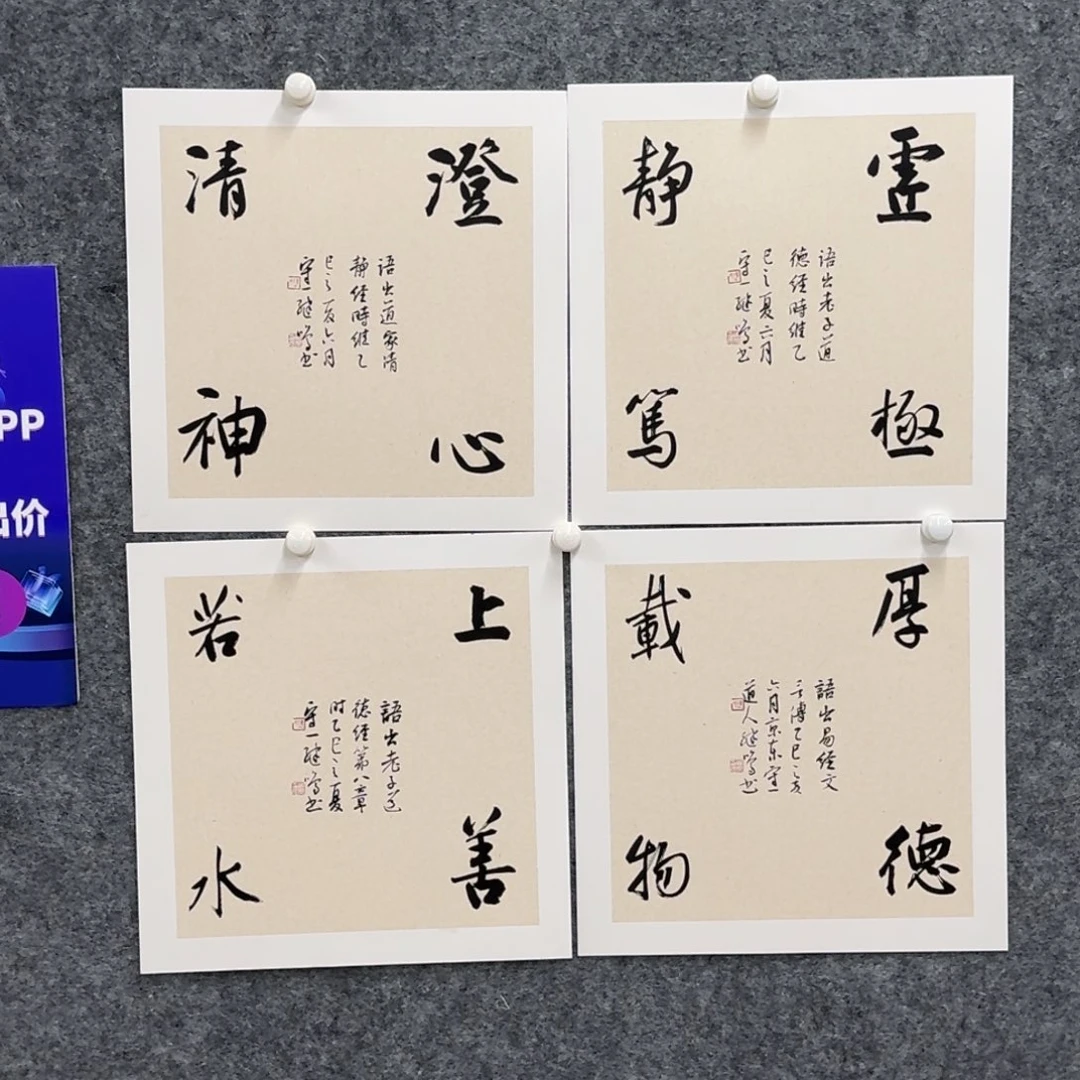 澄心
清神
语出道家清
静经時维乙
巳之夏六月
守一继鸣书
虚極
静篤
语出老子道
德经時维乙
巳之夏六月
守一继鸣书
上善
若水
語出老子道
德经第八章
时乙巳之夏
守一继鸣书
厚德
載物
語出易经文
言傳乙巳之夏
六月京东守一
道人继鸣书
PP
出价